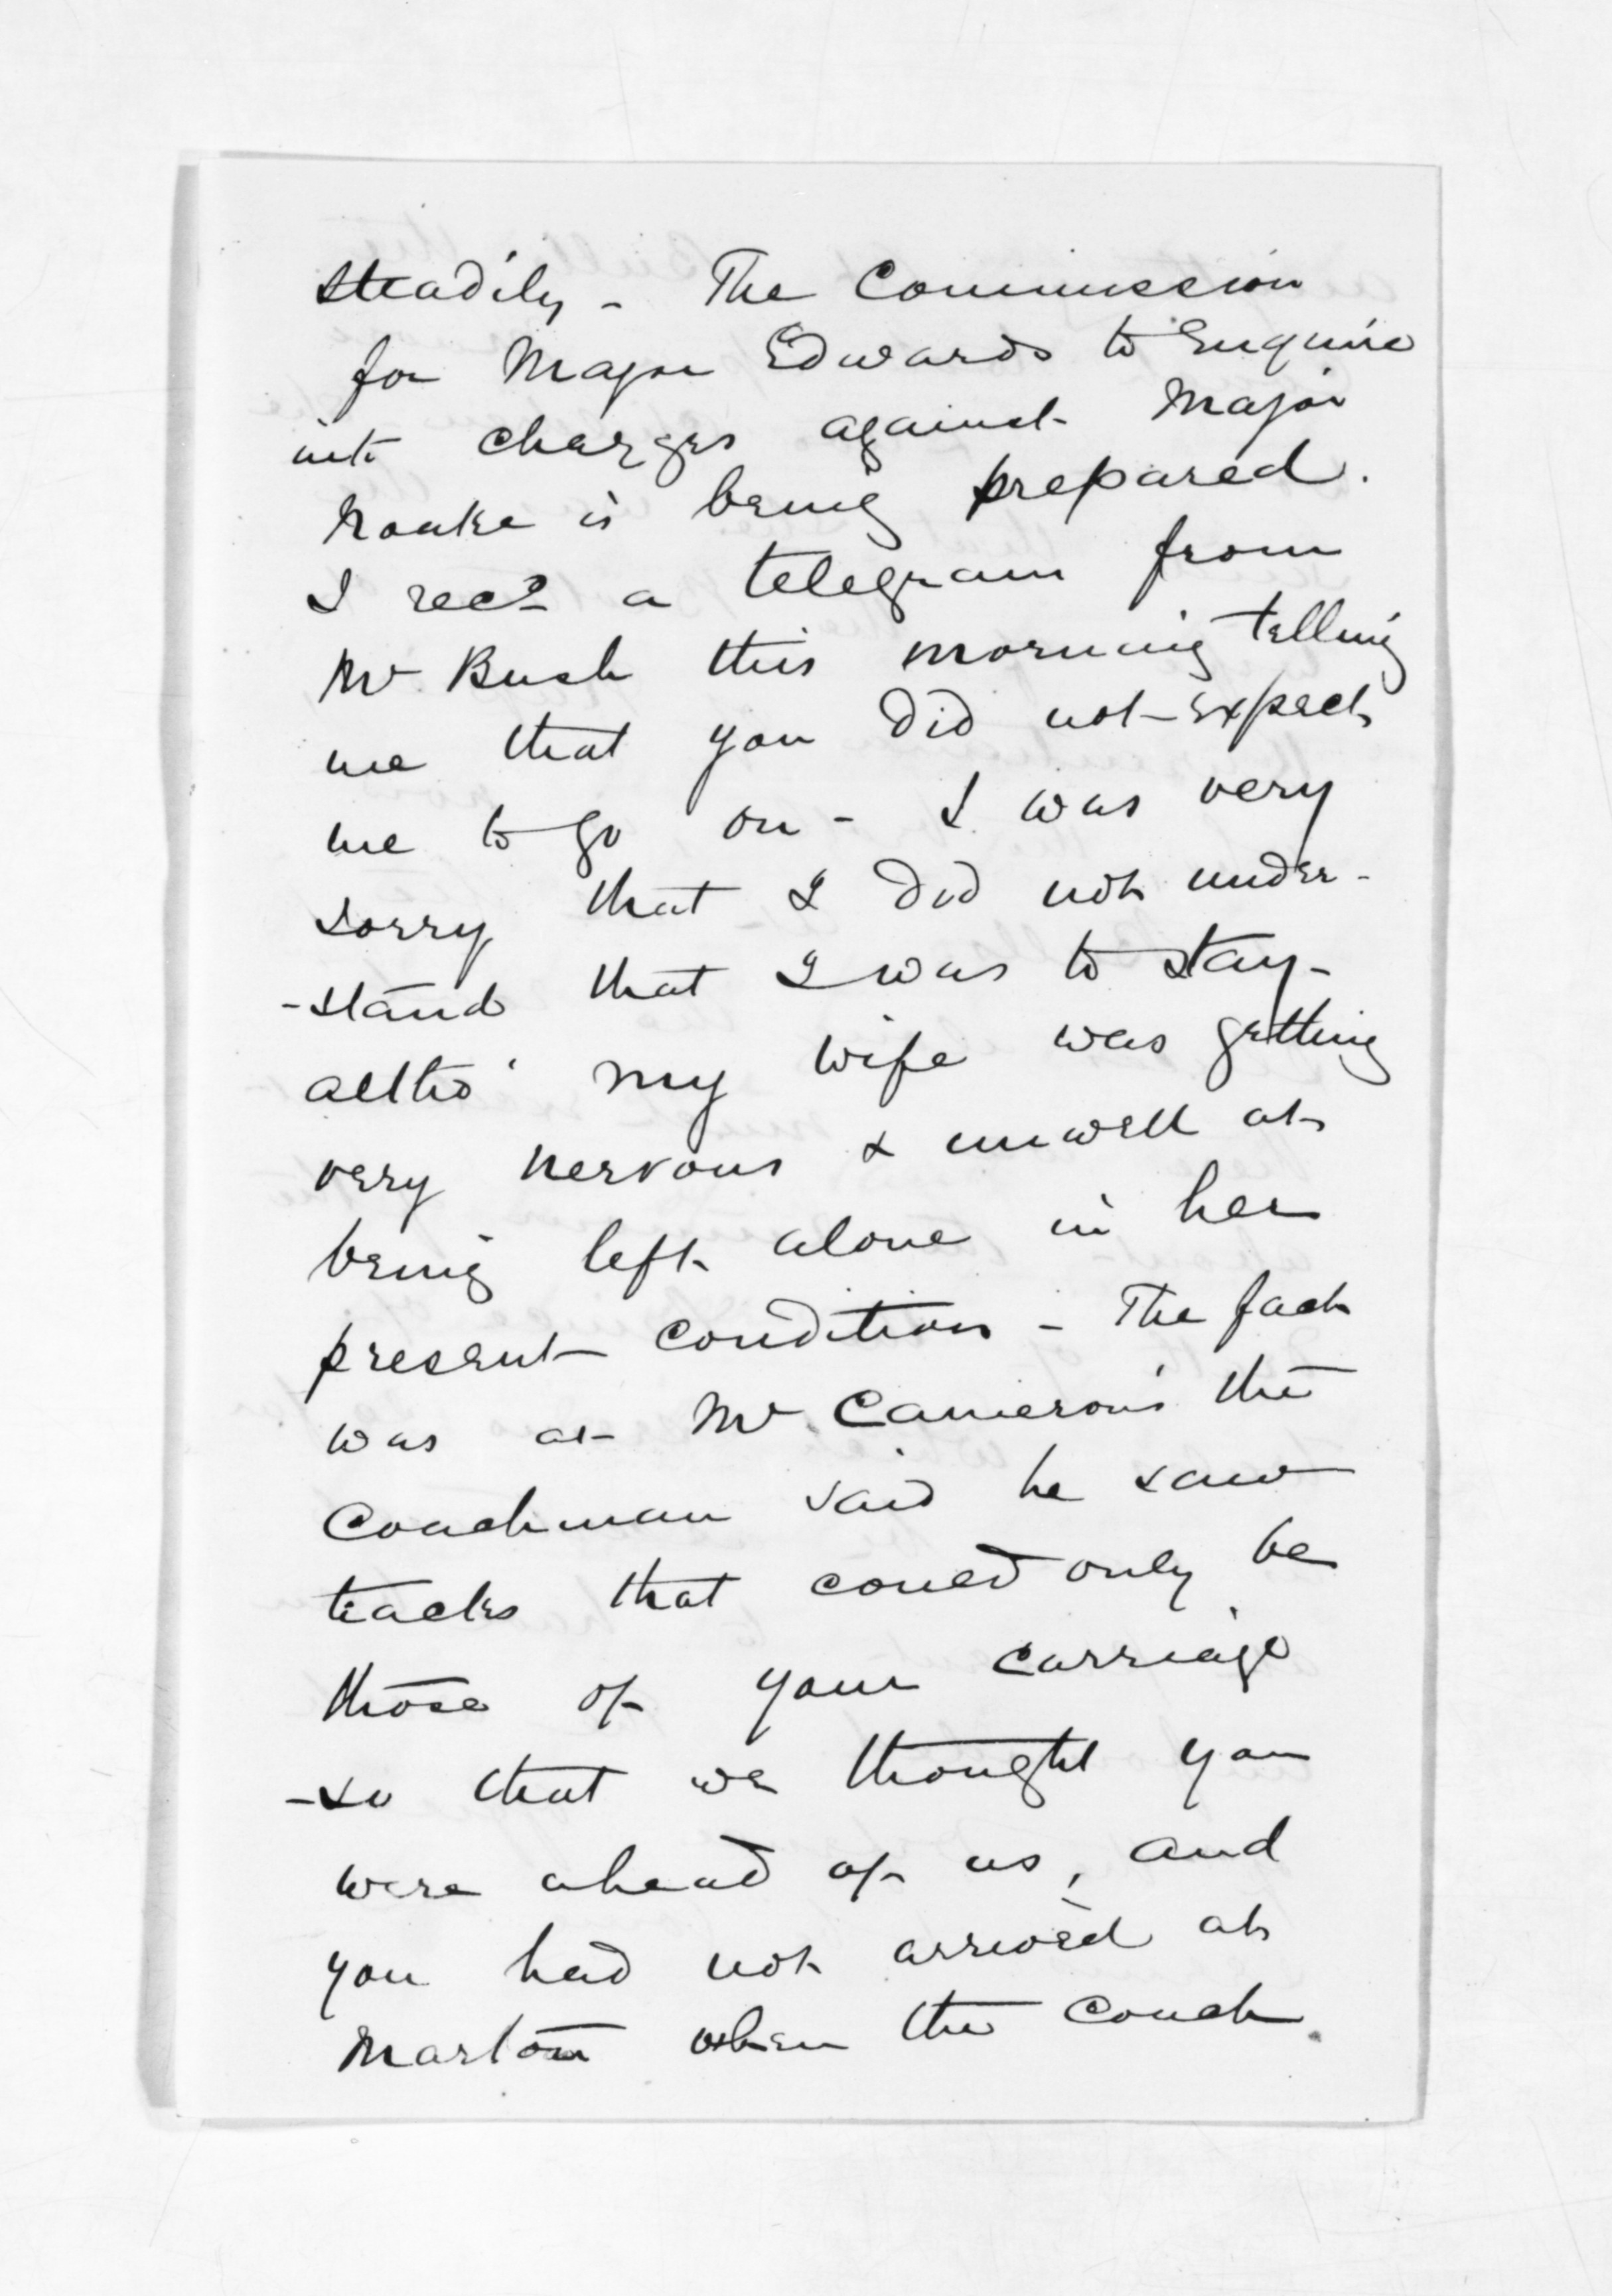 steadily - The Commission
for Major Edwards to Enquire
into charges against Major
Noake is being prepared.
I recd a telegram from
Mr. Bush this morning telling
me that you did not expect
me to go on - I was very
sorry that I did not under-
-stand that I was to stay -
altho' my wife was getting
very nervous & unwell at
being left alone in her
present condition - The fact
was at Mr. Cameron's the
Coachman said he saw
tracks that could only be
those of your carriage
-so that we thought you
were ahead of us, and
you had not arrived at
Marton when the Coach